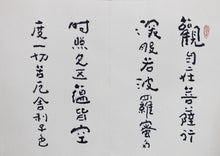 觀自在菩薩行
深般若波羅蜜多
時照見五蘊皆空
度一切苦厄舍利子色